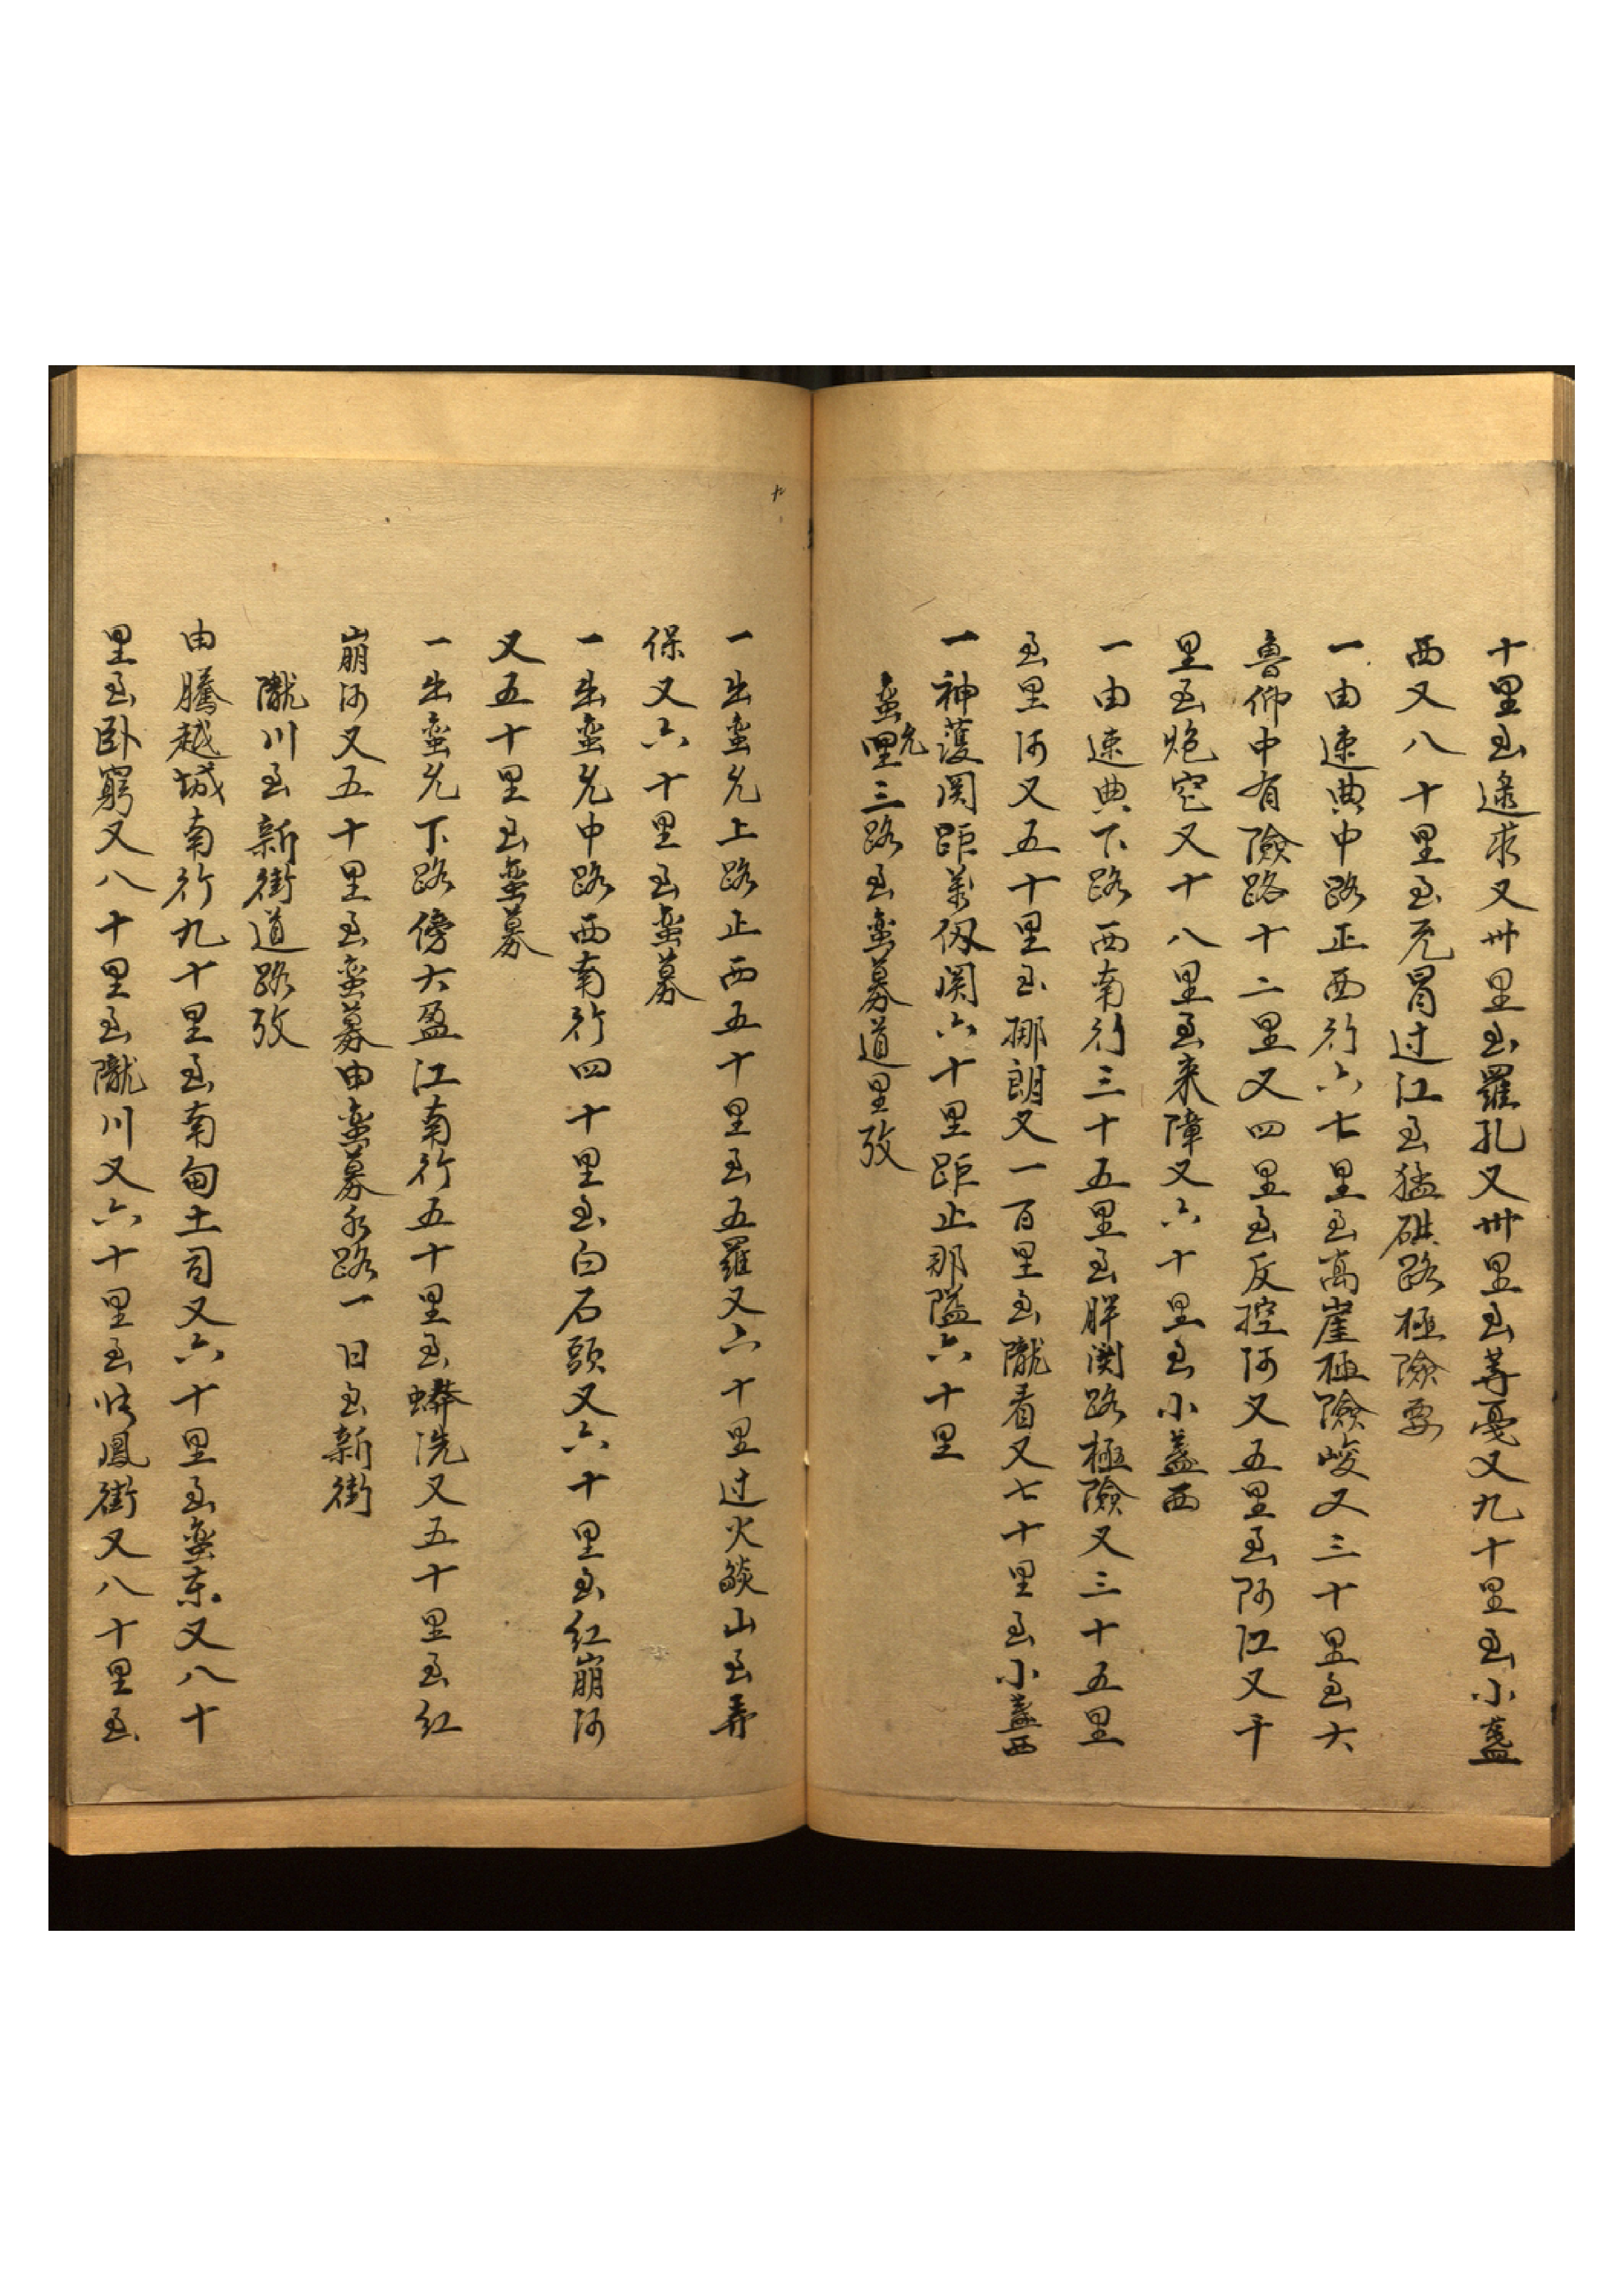 十里至遂求又卅里至羅孔又卅里至蕁憂又九十里至小盞
西又八十里至充冒过江至猛硔路極險要
一由速典中路正西行六七里至高崖極險峻又三十里至大
魯仰中有險路十二里又四里至反控河又五里至阿江又千
里至炮空又十八里至来障又六十里至小盞西
一由速典下路西南行三十五里至胖関路極險又三十五里
至里河又五十里至挪朗又一百里至隴看又七十里至小盞西
一神護関距萬仭関六十里距止那隘六十里
蛮允三路至蛮募道里攷
一出蛮允上路正西五十里至五羅又六十里过火燄山至弄
保又六十里至蛮募
一出蛮允中路西南行四十里至白石頭又六十里至紅崩河
又五十里至蛮募
一出蛮允下路傍大盈江南行五十里至蟒洗又五十里至紅
崩河又五十里至蛮募由蛮募水路一日至新街
隴川至新街道路攷
由騰越城南行九十里至南甸土司又六十里至蛮东又八十
里至卧窮又八十里至隴川又六十里至鳳街又八十里至